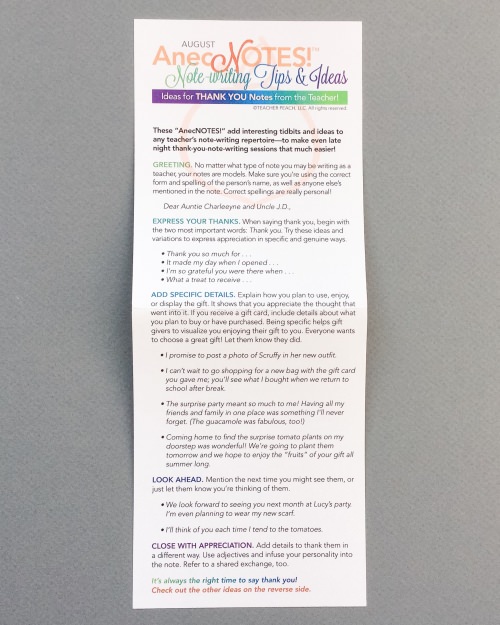 AUGUST
AnecNOTES!™
Note-writing Tips & Ideas
Ideas for THANK YOU Notes from the Teacher!
©TEACHER PEACH, LLC. All rights reserved.
These "AnecNOTES!" add interesting tidbits and ideas to
any teacher's note-writing repertoire—to make even late
night thank-you-note-writing sessions that much easier!
GREETING. No matter what type of note you may be writing as a
teacher, your notes are models. Make sure you're using the correct
form and spelling of the person's name, as well as anyone else's
mentioned in the note. Correct spellings are really personal!
Dear Auntie Charleeyne and Uncle J.D.,
EXPRESS YOUR THANKS. When saying thank you, begin with
the two most important words: Thank you. Try these ideas and
variations to express appreciation in specific and genuine ways.
• Thank you so much for . . .
• It made my day when I opened . . .
• I'm so grateful you were there when . . .
• What a treat to receive . . .
ADD SPECIFIC DETAILS. Explain how you plan to use, enjoy,
or display the gift. It shows that you appreciate the thought that
went into it. If you receive a gift card, include details about what
you plan to buy or have purchased. Being specific helps gift
givers to visualize you enjoying their gift to you. Everyone wants
to choose a great gift! Let them know they did.
• I promise to post a photo of Scruffy in her new outfit.
• I can't wait to go shopping for a new bag with the gift card
you gave me; you'll see what I bought when we return to
school after break.
• The surprise party meant so much to me! Having all my
friends and family in one place was something I'll never
forget. (The guacamole was fabulous, too!)
• Coming home to find the surprise tomato plants on my
doorstep was wonderful! We're going to plant them
tomorrow and we hope to enjoy the "fruits" of your gift all
summer long.
LOOK AHEAD. Mention the next time you might see them, or
just let them know you're thinking of them.
• We look forward to seeing you next month at Lucy's party.
I'm even planning to wear my new scarf.
• I'll think of you each time I tend to the tomatoes.
CLOSE WITH APPRECIATION. Add details to thank them in
a different way. Use adjectives and infuse your personality into
the note. Refer to a shared exchange, too.
It's always the right time to say thank you!
Check out the other ideas on the reverse side.